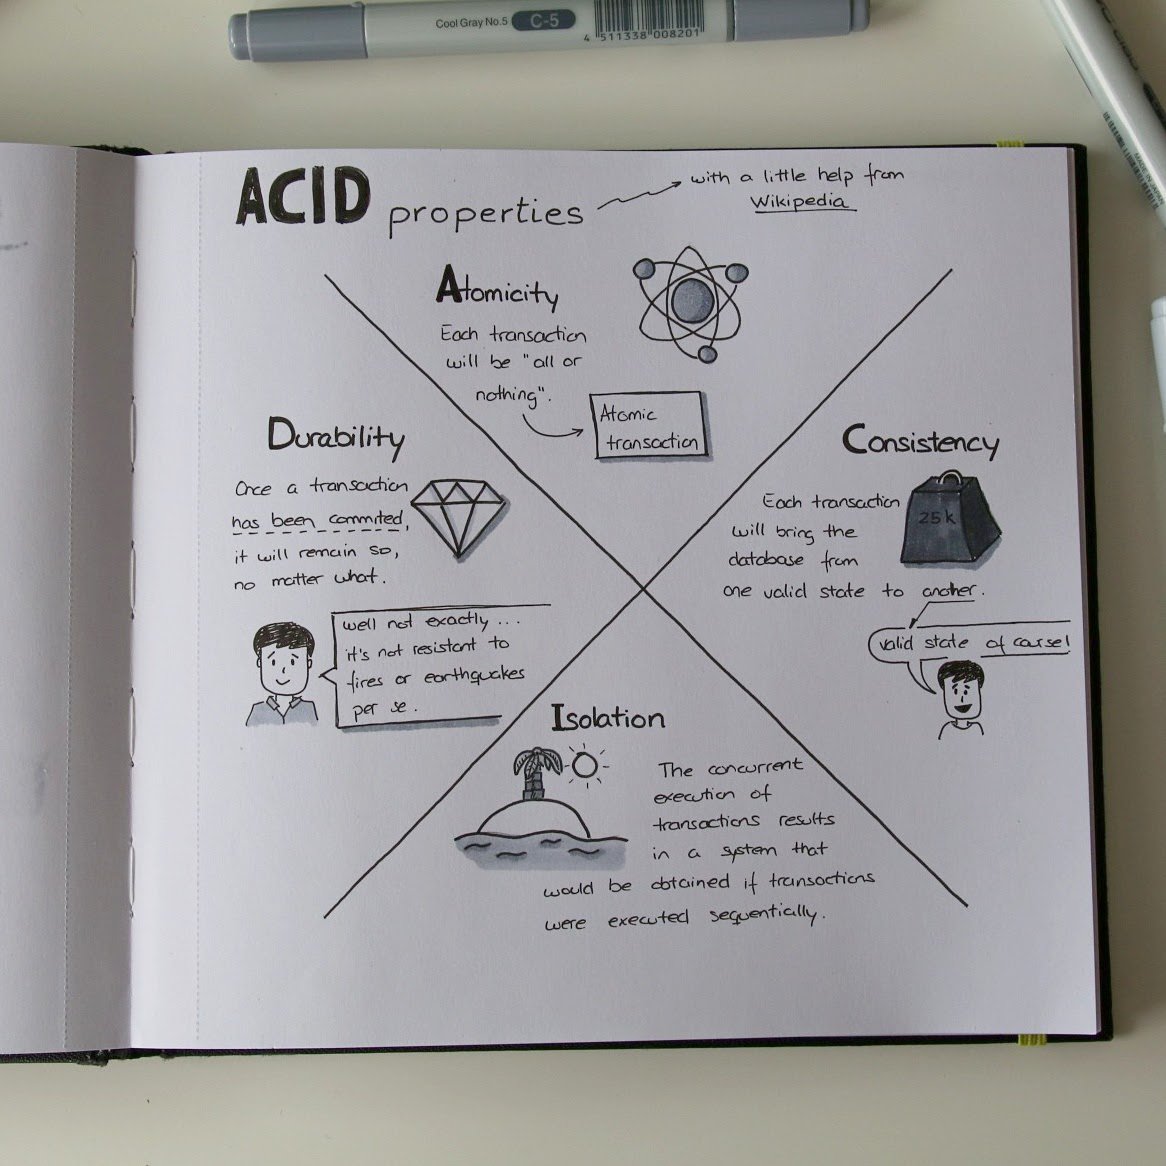 Cool Gray No.5 C-5
4 511338 008201
ACID properties
with a little help from
Wikipedia
Atomicity
Each transaction
will be "all or
nothing".
Atomic
transaction
Durability
Once a transaction
has been commited,
it will remain so,
no matter what.
well not exactly ...
it's not resistant to
fires or earthquakes
per se.
Consistency
Each transaction
will bring the
database from
one valid state to another.
25k
valid state of course!
Isolation
The concurrent
execution of
transactions results
in a system that
would be obtained if transactions
were executed sequentially.